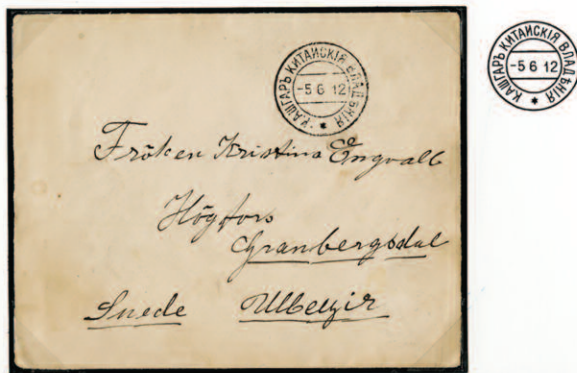 КАШГАРЪ КИТАЙСКІЯ ВЛАДѢНІЯ
-5 6 12
Fröken Kristina Engvall
Högfors
Granbergsdal
Suede Швецiя
КАШГАРЪ КИТАЙСКІЯ ВЛАДѢНІЯ
-5 6 12